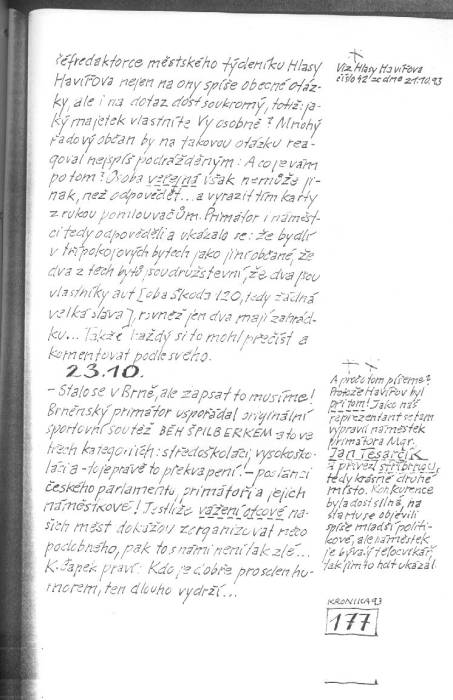 šéfredaktorce městského týdeníku Hlasy
Havířova nejen na ony spíše obecné otáz-
ky, ale i na dotaz dost soukromý, totiž ja-
ký majetek vlastníte Vy osobně? Mnohý
řadový občan by na takovou otázku rea-
goval nejspíš podrážděným: A co je vám
po tom? Osoba veřejná však nemůže ji-
nak, než odpovědět... a vyrazit tím karty
z rukou pomlouvačům. Primátor i náměst-
ci tedy odpověděli a ukázalo se: že bydlí
v třípokojových bytech jako jiní občané, že
dva z těch bytů jsou družstevní, že dva jsou
vlastníky aut [oba Škoda 120, tedy žádná
velká sláva], rovněž jen dva mají zahrád-
ku... Takže každý si to mohl přečíst a
komentovat podle svého.
23.10.
– Stalo se v Brně, ale zapsat to musíme!
Brněnský primátor uspořádal originální
sportovní soutěž BĚH ŠPILBERKEM a to ve
třech kategoriích: středoškoláci, vysokoško-
láci a – to je právě to překvapení! – poslanci
českého parlamentu, primátoři a jejich
náměstkové! Jestliže vážení otcové na-
šich měst dokážou zorganizovat něco
podobného, pak to s námi není tak zlé...
K. Čapek praví: Kdo je dobře prosolen hu-
morem, ten dlouho vydrží...
Viz Hlasy Havířova
číslo 42 ze dne 21.10.93
A proč o tom píšeme?
Protože Havířov byl
při tom! Jako náš
reprezentant se tam
vypravil náměstek
primátora Mgr.
Jan Tesarčík
a přivezl stříbrnou,
tedy krásné druhé
místo. Konkurence
byla dost silná, na
startu se objevili
spíše mladší politi-
kové, ale náměstek
je bývalý tělocvikář,
tak jim to hdt ukázal.
KRONIKA 93
177